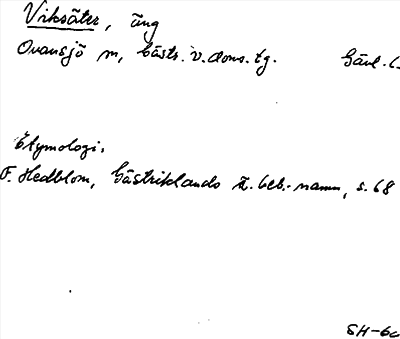 Viksäter, äng
Ovansjö sn, Gästr. v. doms. tg. Gävl. l.
Etymologi.
F. Hedblom, Gästriklands ä. beb.-namn, s. 68
SH-60